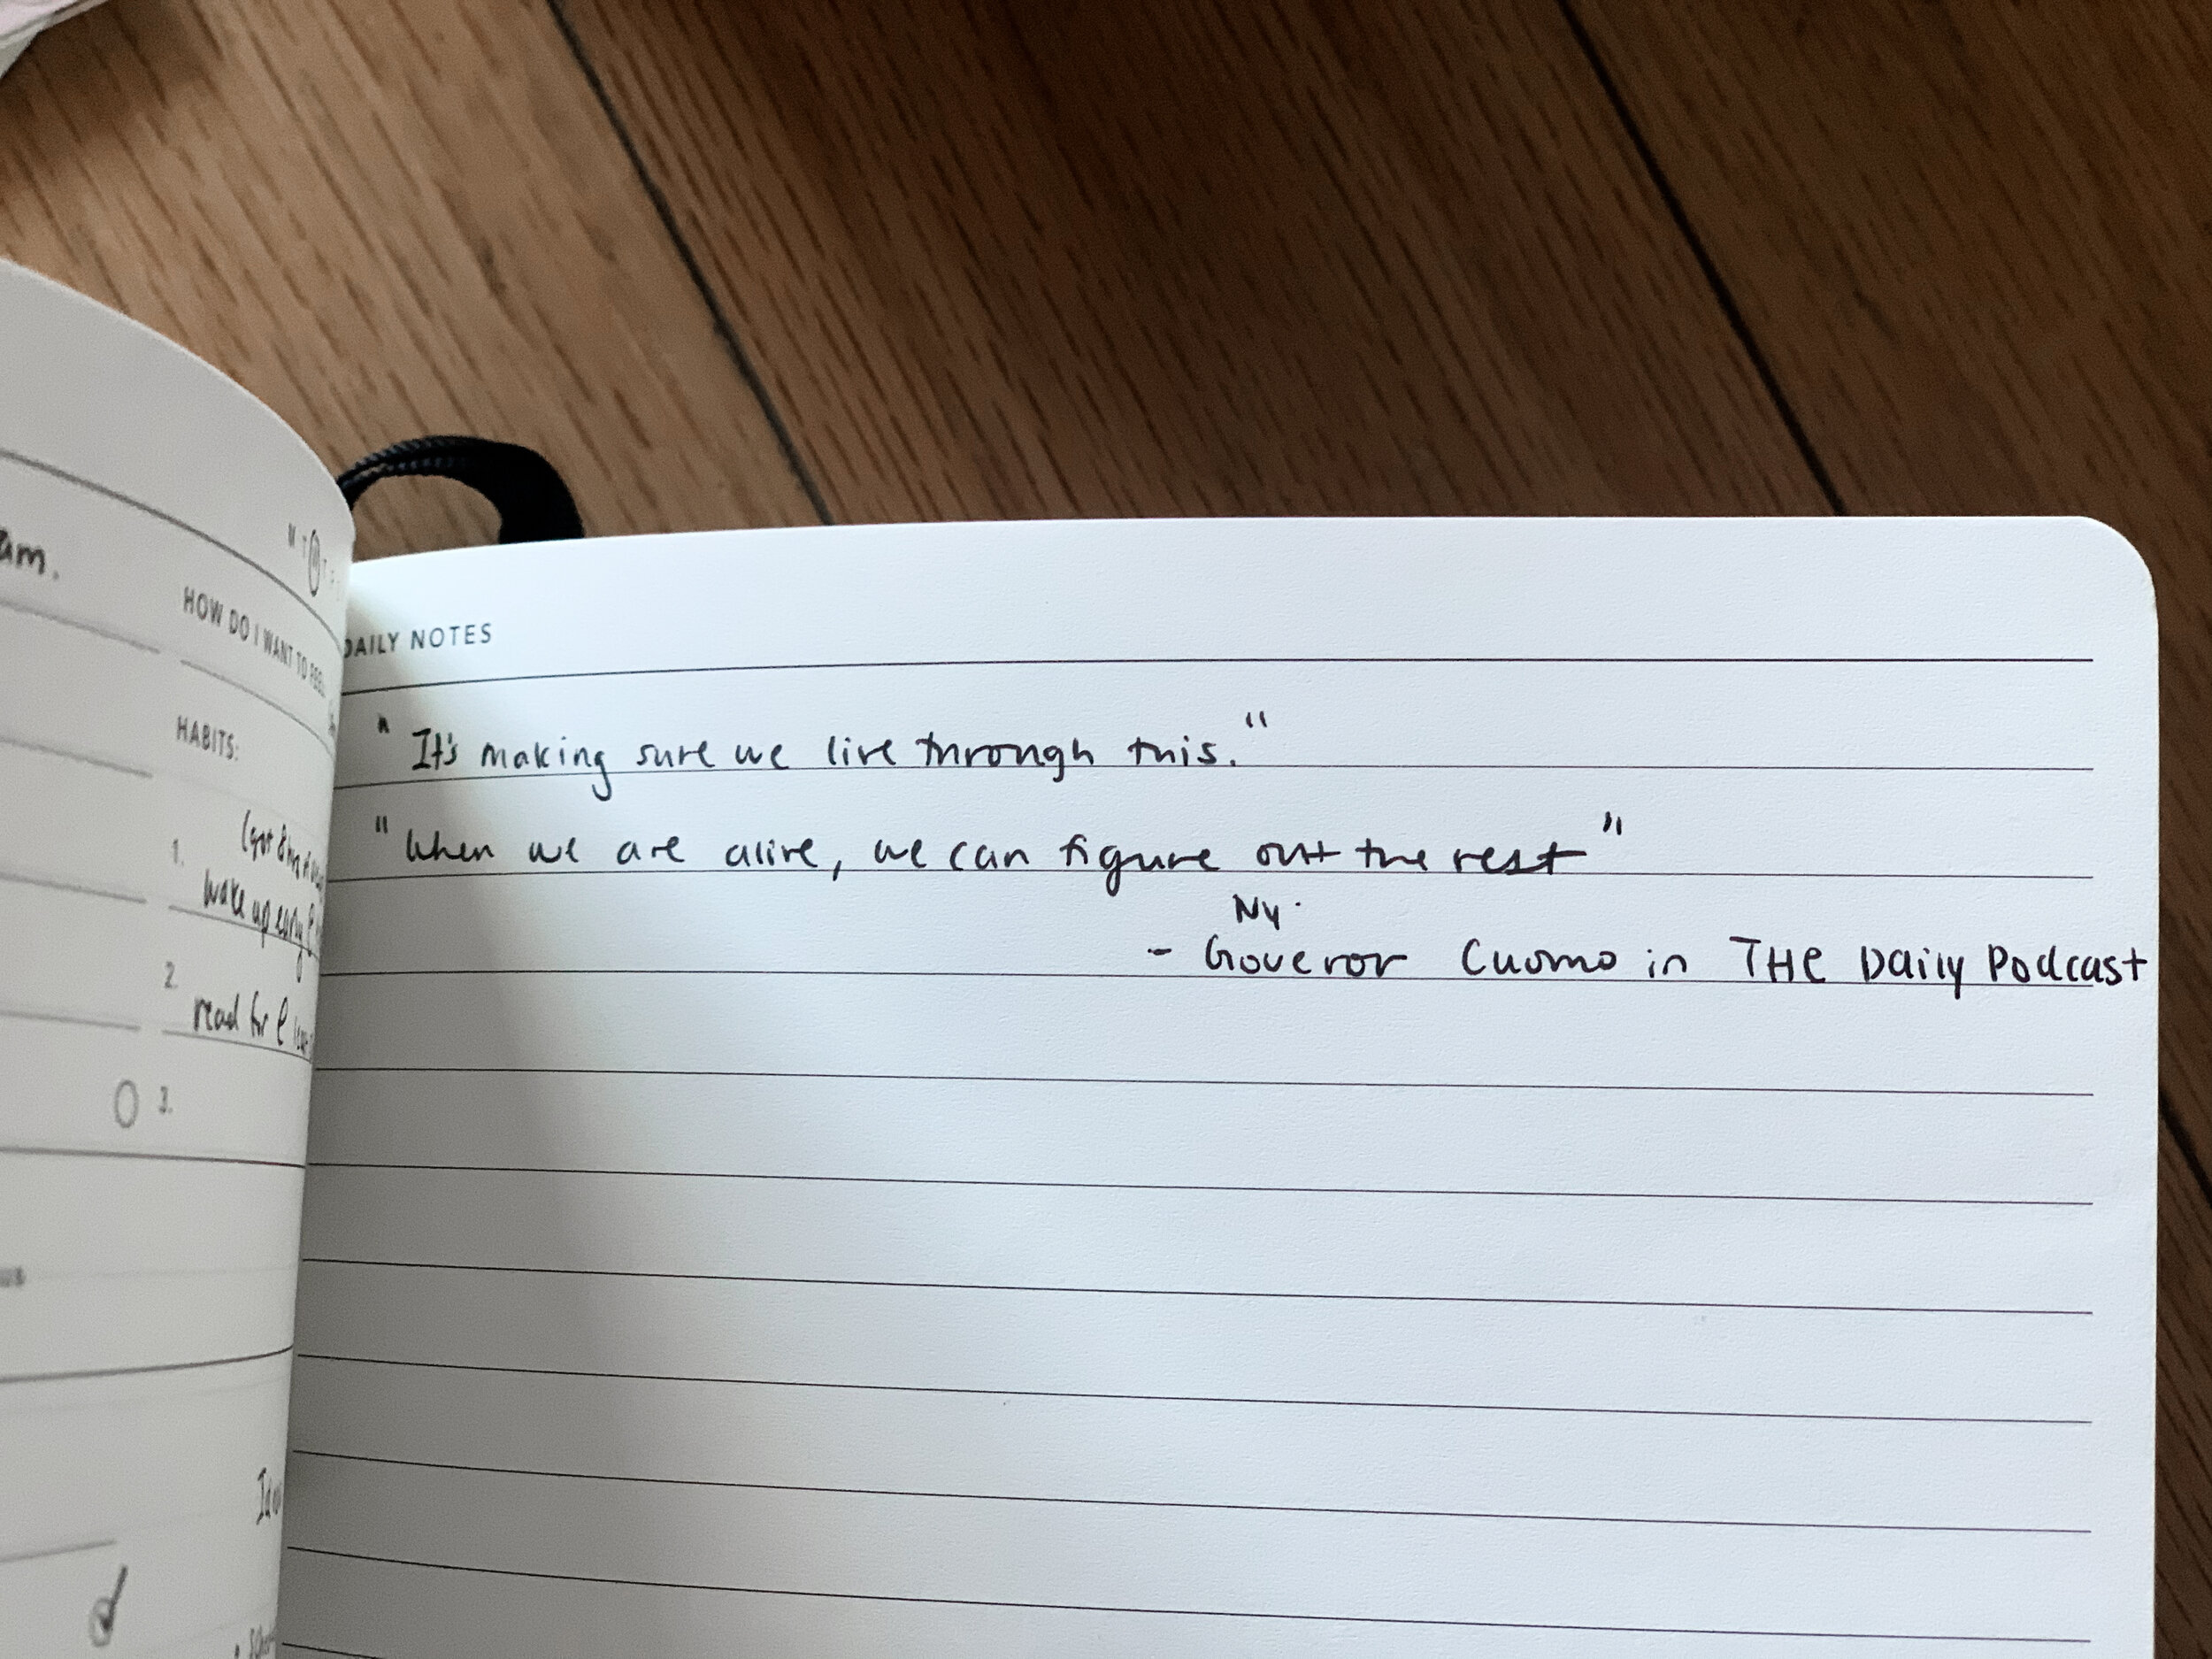 am.
M T W T F
HOW DO I WANT TO FEEL
HABITS:
1.
wake up early
2.
read for
3.
DAILY NOTES
" It's making sure we live through this."
"When we are alive, we can figure out the rest"
NY.
- Goveror Cuomo in THE Daily Podcast